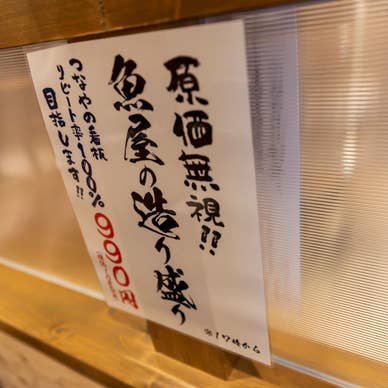 原価無視!!
魚屋の造り盛り
つなやの看板
リピート率100%
目指します!!
990円